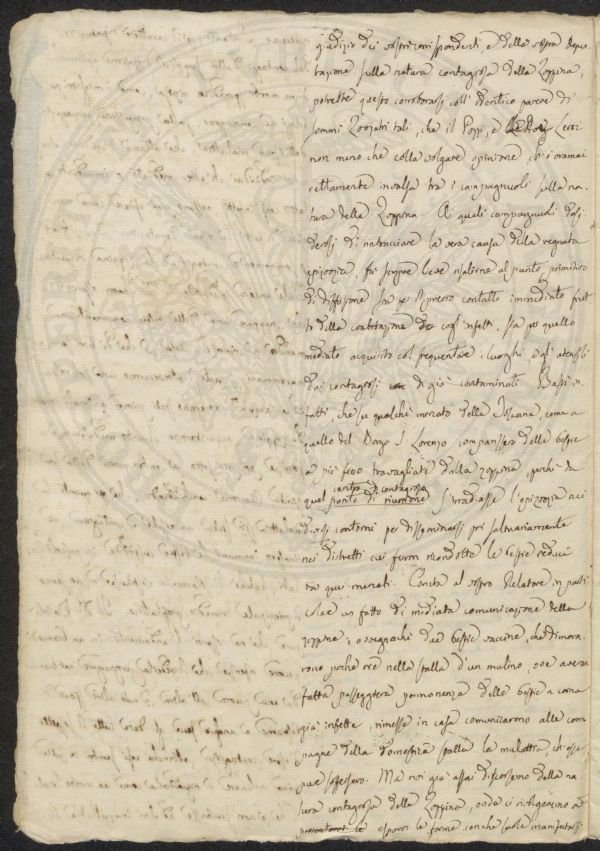 giudizio dei vostri corrispondenti, e della vostra depu-
tazione sulla natura contagiosa della Zoppina,
potrette questo corroborarsi coll' identico parere di
sommi Zoojatri tali, che il Pozzi, e Leroi
non meno che colla volgare opinione ormai
cettamente invalsa tra i campagnuoli sulla na-
tura della Zoppina. Ai quali campagnuoli desi-
derosi di rintracciare la vera causa della regnata
epizoozia, fu sempre lieve risalirne al punto primitivo
di diffusione sia per contatto immediato frut-
to della coabitazione cogl' infetti, sia per quello
mediato acquisito col frequentare i luoghi, e gli utensili
dai contagiosi di già contaminati. Basti in-
fatti, che su qualche mercato della Toscana, come a
quello del Borgo S. Lorenzo comparissero delle bestie
a piè fesso travagliate dalla zoppina, perchè da
centro di contagiosa
quel punto di riunione s'irradiasse l'epizoozia nei
diversi contorni per disseminarsi poi saltuariamente
nei distretti cui furon ricondotte le bestie reduci
da quei mercati. Consta al vostro Relatore in parti-
colare un fatto di mediata comunicazione della
zoppina; avvegnachè due bestie vaccine, che dimora-
rono poche ore nella stalla d'un mulino, ove aveva
fatta passeggiera permanenza delle bestie a corna
già infette, rimesse in casa comunicarono alle com-
pagne della domestica stalla la malattia, ch'esse
pure soffersero. Ma noi già assai discorremmo della na-
tura contagiosa della Zoppina, onde ci rivolgeremo a
esporvi le forme con che suole manifestarsi